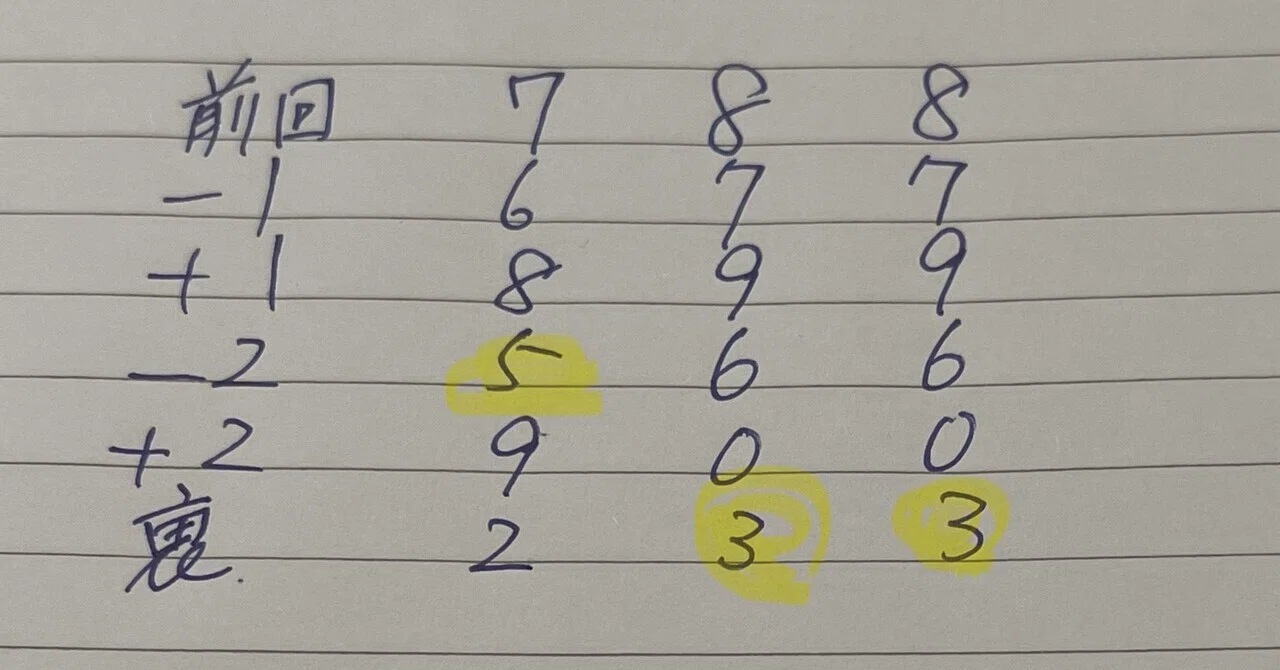 前回 7 8 8
－1 6 7 7
＋1 8 9 9
－2 5 6 6
＋2 9 0 0
裏. 2 3 3